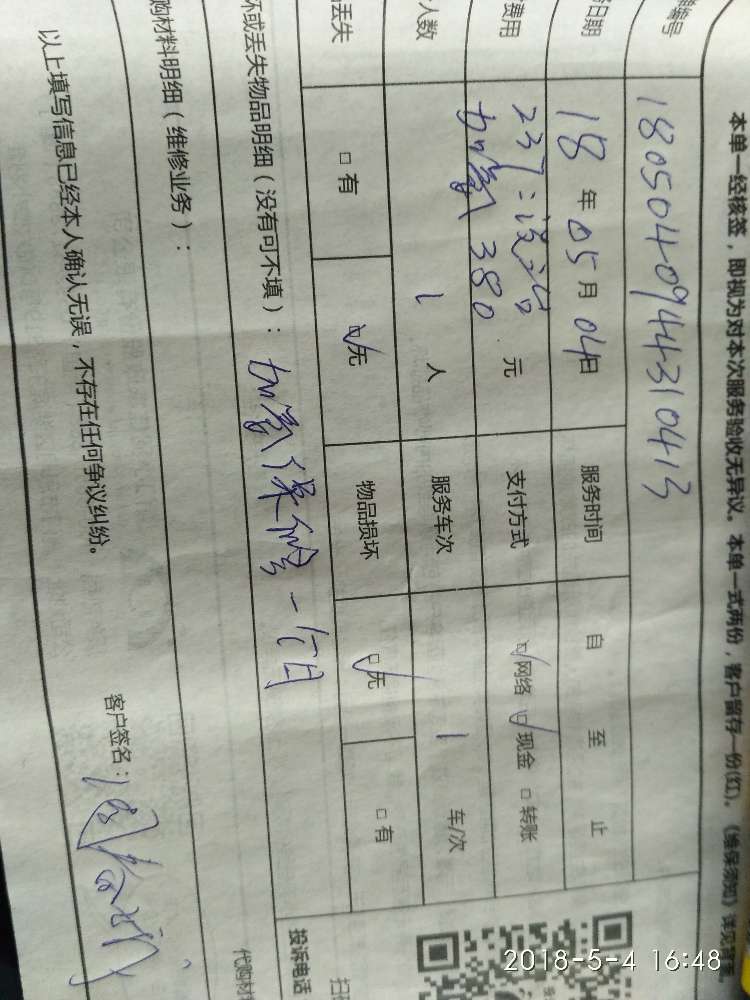 本单一经核签，即视为对本次服务验收无异议。本单一式两份，客户留存一份(红)。《维保须知》详见背面
编号 18050409443310413
日期 18年05月04日 服务时间 自 至 止
费用 237:清洁 加氟 380 元 支付方式 ☑网络 ☑现金 □转账
人数 1人 服务车次 1 车/次
丢失 □有 ☑无 物品损坏 ☑无 □有
坏或丢失物品明细（没有可不填）：加氟保修一个月
购材料明细（维修业务）：
以上填写信息已经本人确认无误，不存在任何争议纠纷。
客户签名：
投诉电话
代购材
扫
2018-5-4 16:48